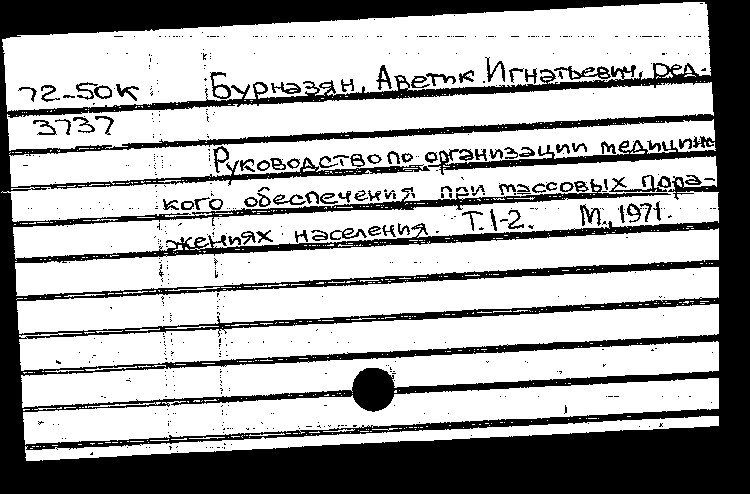 72-50К Бурназян, Аветик Игнатьевич, ред.
3737
Руководство по организации медицинс
кого обеспечения при массовых пора-
жениях населения. Т.1-2. М., 1971.